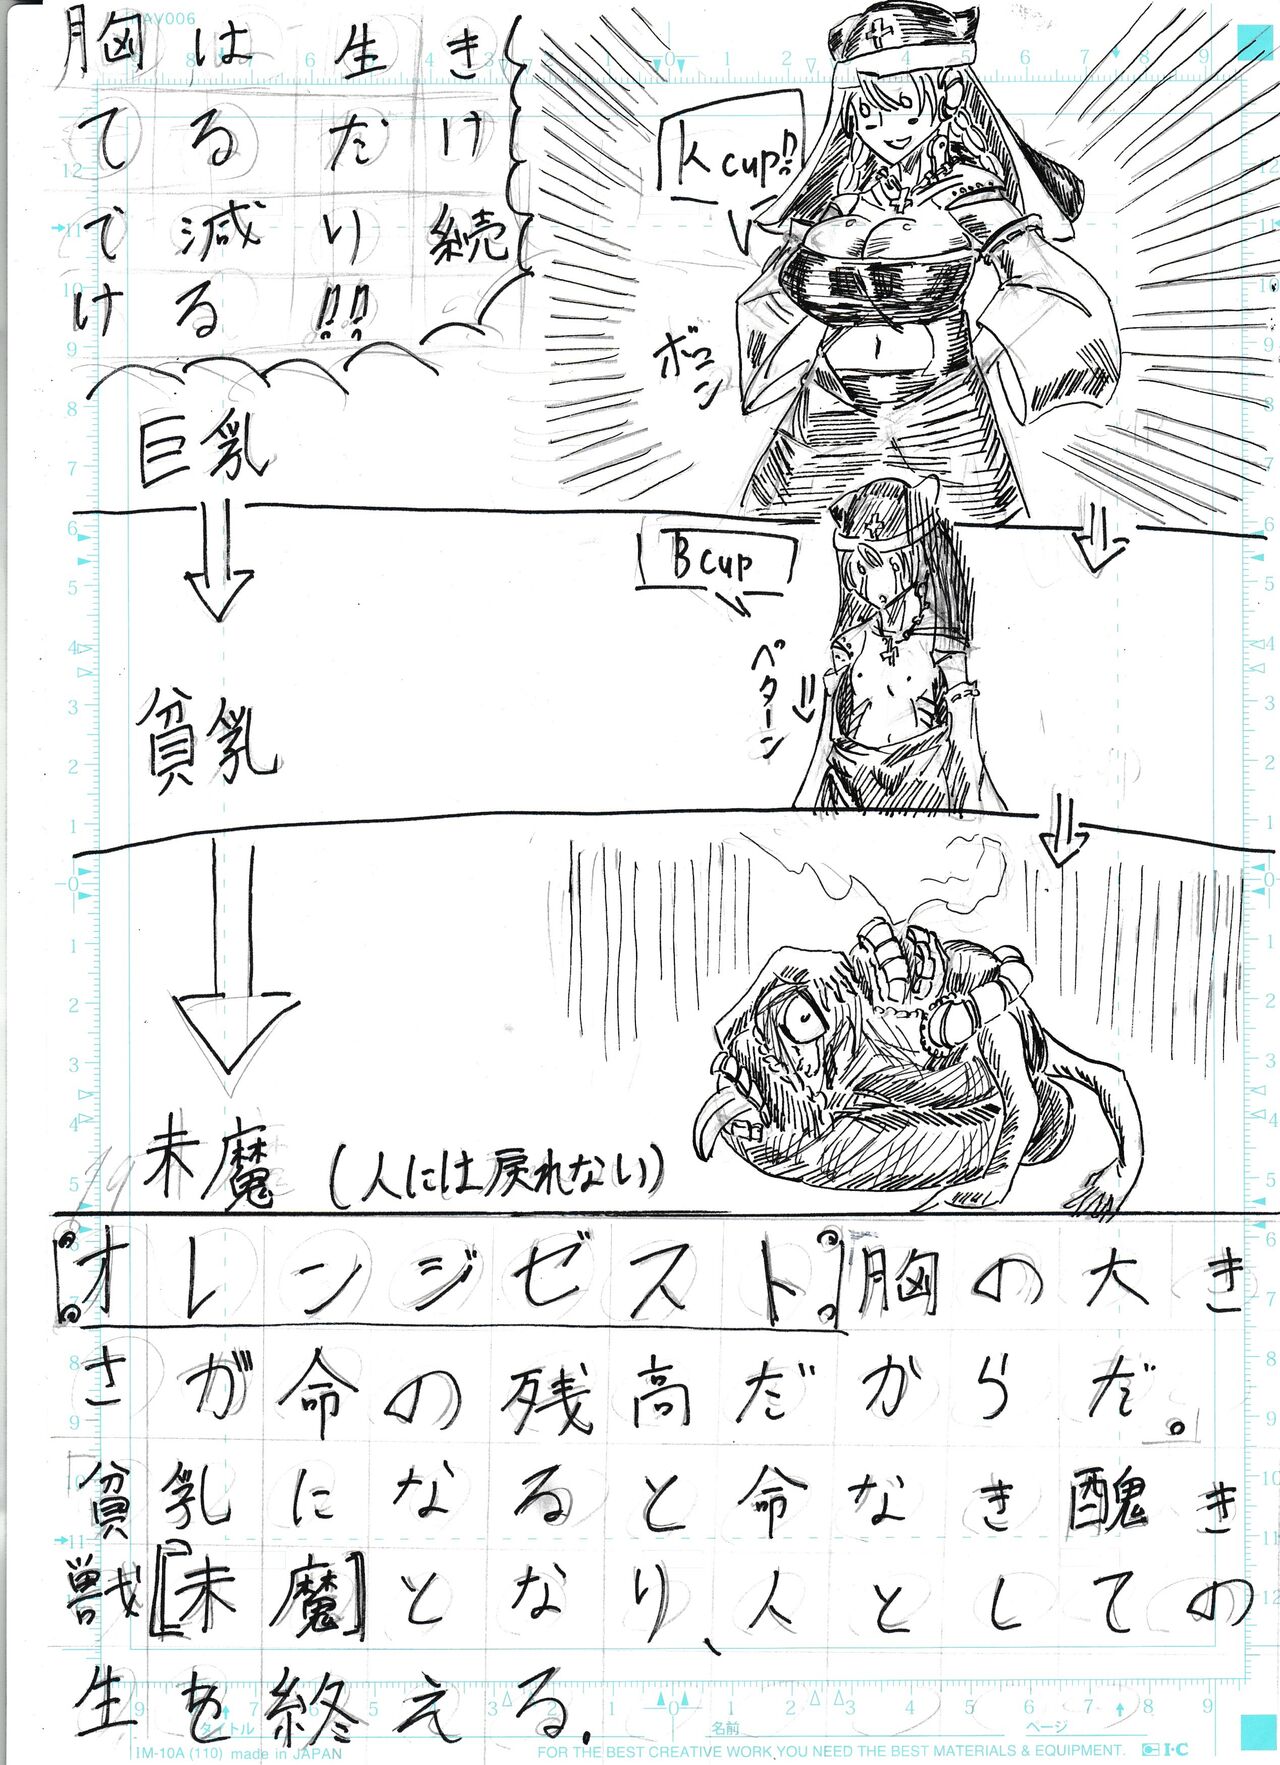 胸は生き
てるだけ
で減り続
ける!!
K cup!!
ボイン
巨乳
B cup
ペターン
貧乳
未魔 (人には戻れない)
『オレンジゼスト』胸の大き
さが命の残高だからだ。
貧乳になると命なき醜き
獣[未魔]となり、人としての
生を終える.
タイトル 名前 ページ
IM-10A (110) made in JAPAN FOR THE BEST CREATIVE WORK, YOU NEED THE BEST MATERIALS & EQUIPMENT. I・C